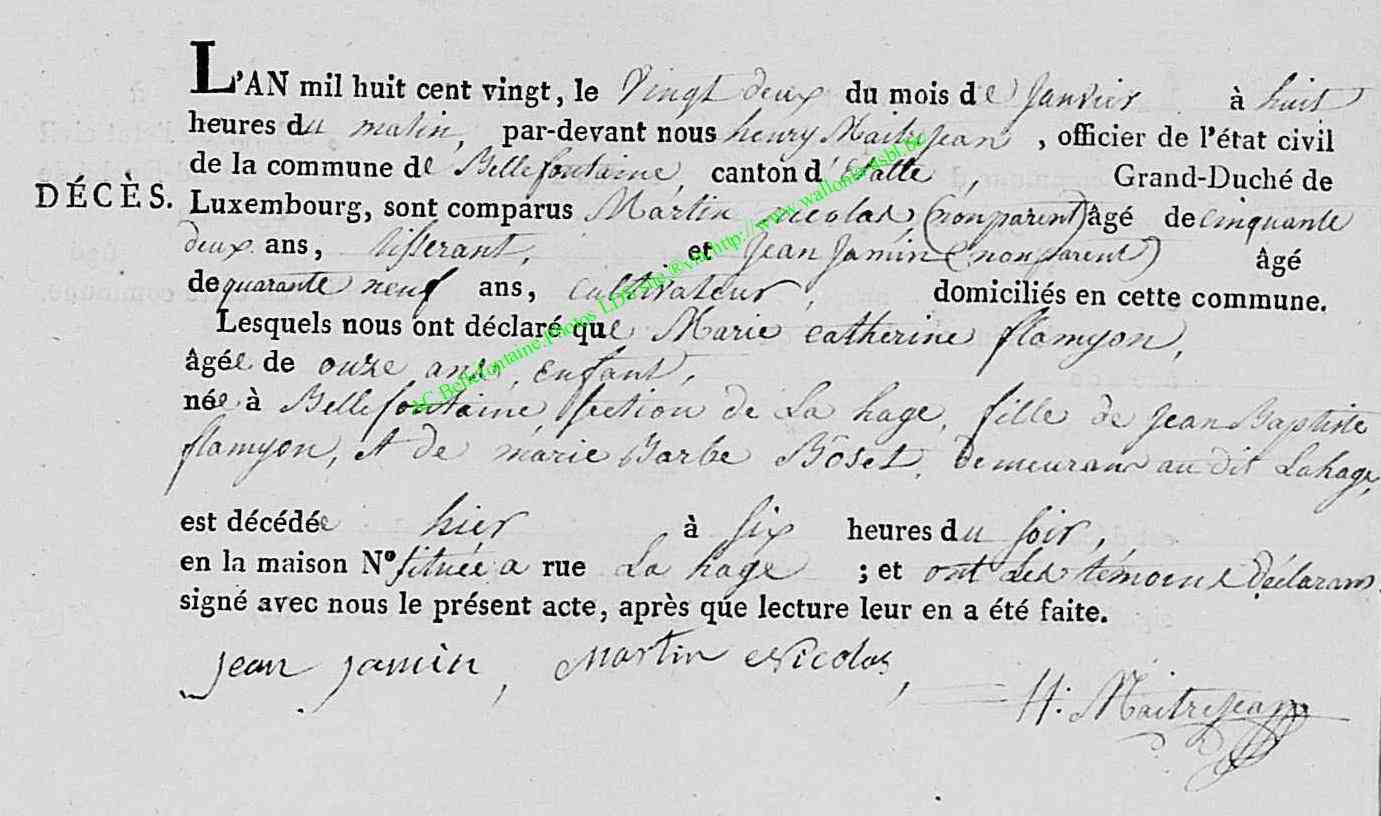 L'AN mil huit cent vingt, le Vingt deux du mois de Janvier à huit
heures du matin, par-devant nous henry Maitrejean, officier de l'état civil
de la commune de Bellefontaine, canton d'Etalle, Grand-Duché de
DÉCÈS. Luxembourg, sont comparus Martin nicolas, (non parent) âgé de cinquante
deux ans, tisserant, et Jean Jamin (non parent) âgé
de quarante neuf ans, cultivateur, domiciliés en cette commune.
Lesquels nous ont déclaré que Marie catherine flamyon,
âgée de onze ans, enfant,
née à Bellefontaine, section de La hage, fille de Jean Baptiste
flamyon, et de marie Barbe Boset, demeurans au dit Lahage,
est décédée hier à six heures du soir,
en la maison N° située a rue La hage ; et ont les témoins déclarans
signé avec nous le présent acte, après que lecture leur en a été faite.
jean jamin, Martin Nicolas,
H. Maitrejean